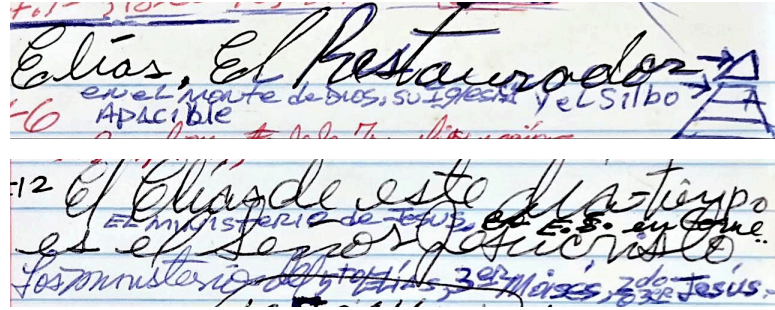 Elías, El Restaurador
en el monte de Dios, su Iglesia y el Silbo
-6 Apacible
-12 El Elías de este día-tiempo
El ministerio de Jesús, es E.S. en carne..
es el Señor Jesucristo
Los ministerios de Elías, 3er Moisés, 2do Jesús.